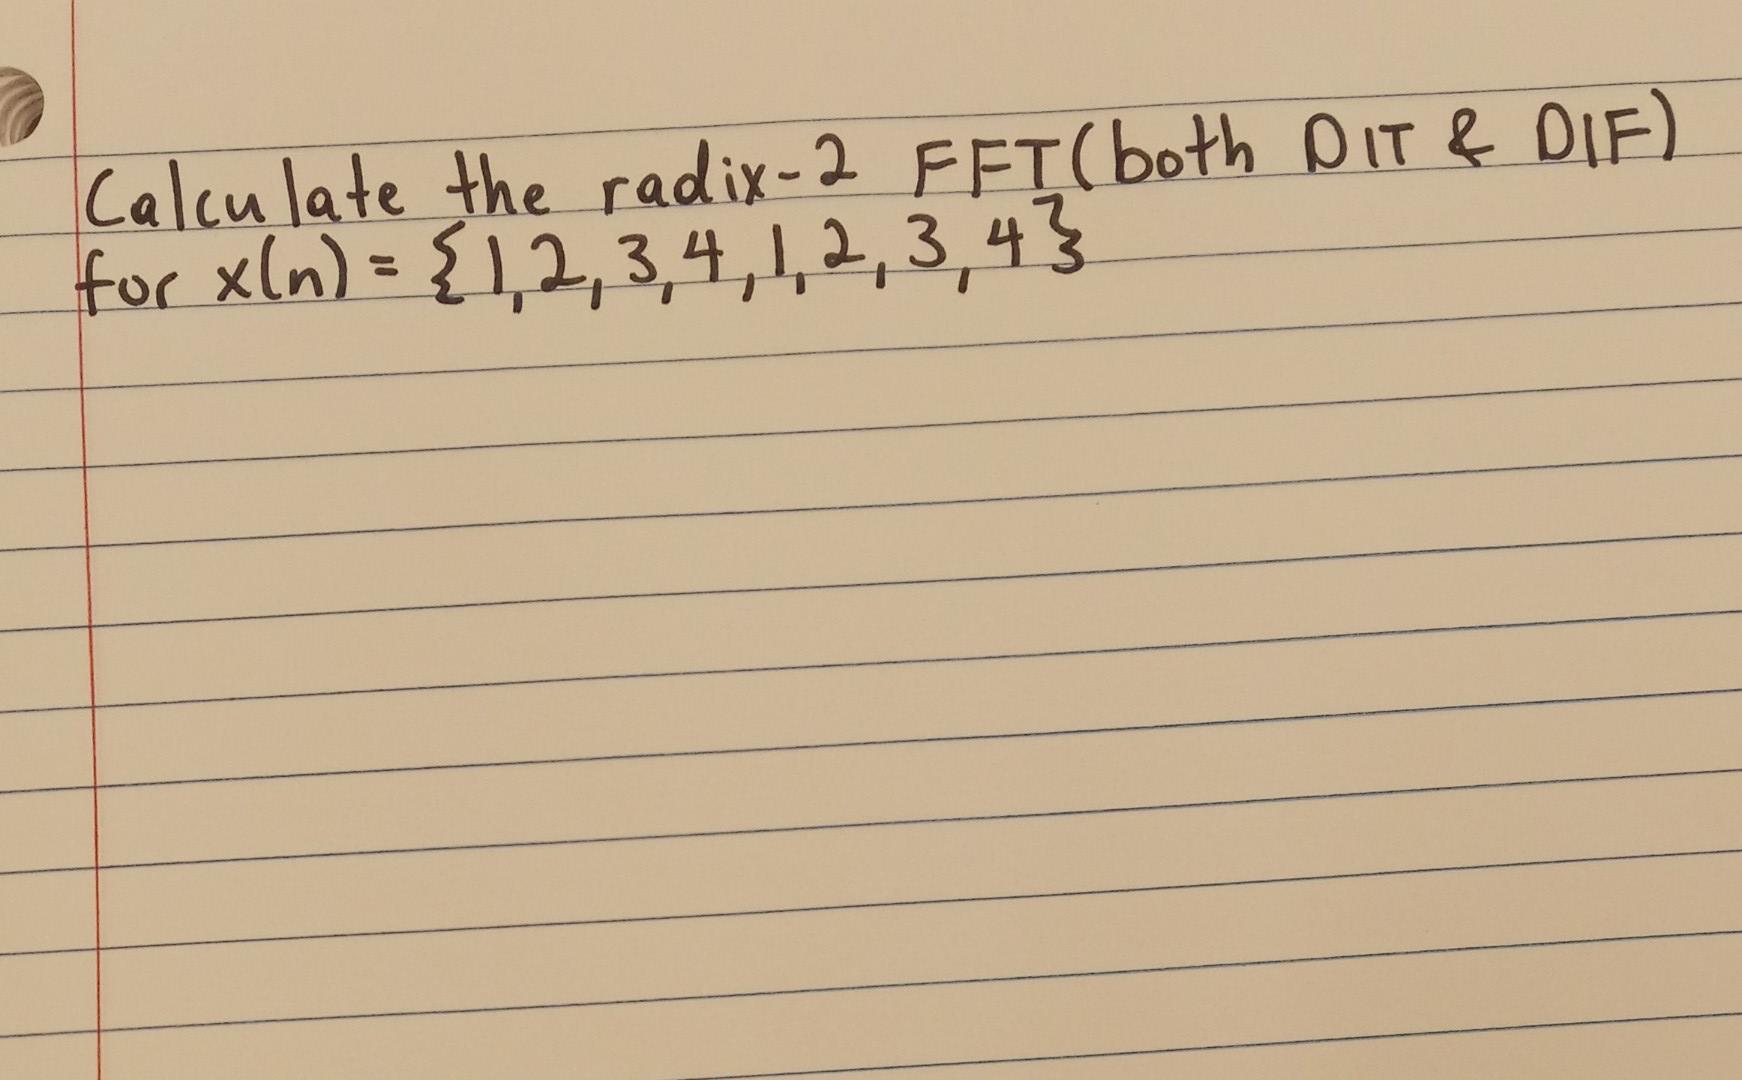 Calculate the radix-2 FFT(both DIT & DIF)
for x(n) = {1,2,3,4,1,2,3,4}